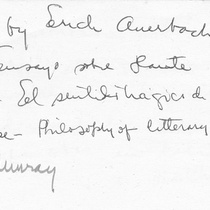 by Erich Auerbach
Ensayo sobre Dante
El sentido trágico de
se - Philosophy of literary
Murray